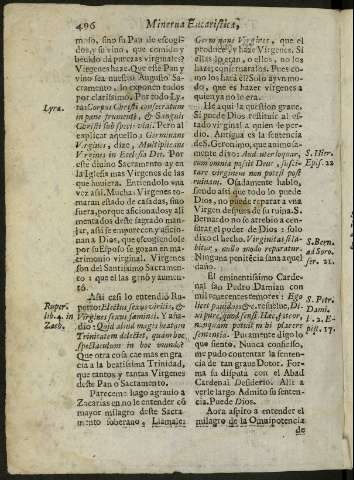 496
Minerva Eucaristica,
moso, sino su Pan de escogi-
dos, y su vino, que comido y
bebido dà purezas virginales
Virgenes haze. Que este Pan y
vino sea nuestro Augusto Sa-
cramento, lo exponen todos
por clarissimo. Por todo Ly-
Lyra.
ra: Corpus Christi consecratum
in pane frumenti, & Sanguis
Christi sub specie vini. Pero al
explicar aquello: Germinans
Virgines, dize, Multiplicans
Virgines in Ecclesia Dei. Por
este divino Sacramento ay en
la Iglesia mas Virgenes de las
que huviera. Entiendolo una
vez assi. Muchas Virgenes to-
maran estado de casadas, sino
fuera, porque aficionados y ali
mentados deste sagrado man-
jar, assi se empurecen y aficio-
nan a Dios, que escogiendolo
por su Esposo se gozan en ma-
trimonio virginal. Virgenes
son del Santissimo Sacramen-
to: a que el las ganò y aumen-
tò.
Assi casi lo entendiò Ru-
Ruper.
lib. 4. in
Zach.
perto: Electus sexus virilis, &
Virgines sexus fæminei. Y aña-
diò: Quid aliud magis beatam
Trinitatem delectet, quàm hoc
spectaculum in hoc mundo?
Que otra cosa cae mas en gra-
cia a la beatissima Trinidad,
que tantos y tantas Virgenes
deste Pan o Sacramento.
Pareceme hago agravio a
Zacarias en no le entender oy
mayor milagro deste Sacra-
mento soberano. Llamale:
Germinans Virgines, que el
produce, y haze Virgenes. Si
ellas lo eran, o ellos, no los
hazer, conservarlos. Pues co-
mo los harà èl? Solo ay un mo-
do, que es hazer virgenes a
quien ya no lo era.
Hè aqui la question grave.
Si puede Dios restituir al es-
tado virginal a quien le per-
dio. Antigua es la sentencia
de S. Geronimo, que animosa-
mente dixo: Audenter loquar,
S. Hier.
Epis. 22
cum omnia possit Deus, suscita-
re virginem non potest post
ruinam. Osadamente hablo,
siendo assi que todo lo puede
Dios, no puede reparar a vna
Virgen despues de su ruina. S.
Bernardo no se atrebiò a con-
fessar de poder a Dios: y solo
dixo el hecho. Virginitas si la-
S. Bern.
ad Soro.
ser. 21.
bitur, nullo modo reparatur.
Ninguna penitencia sana aquel
daño.
El eminentissimo Carde-
nal san Pedro Damian con
mil reverentes temores: Ego
S. Petr.
Dami.
l. 2. E-
pis. 17.
licet pusillanis, &c. restitue, Di-
nunquam potuit mihi placere
sententia. Puramente digo lo
que siento. Nunca, confiesso,
me pudo contentar la senten-
cia de tan grave Dotor. For-
ma su disputa con el Abad
Cardenal Desiderio. Alli a
verle largo Admito su senten-
cia. Puede Dios.
Aora aspiro a entender el
milagro de la Omnipotencia
de